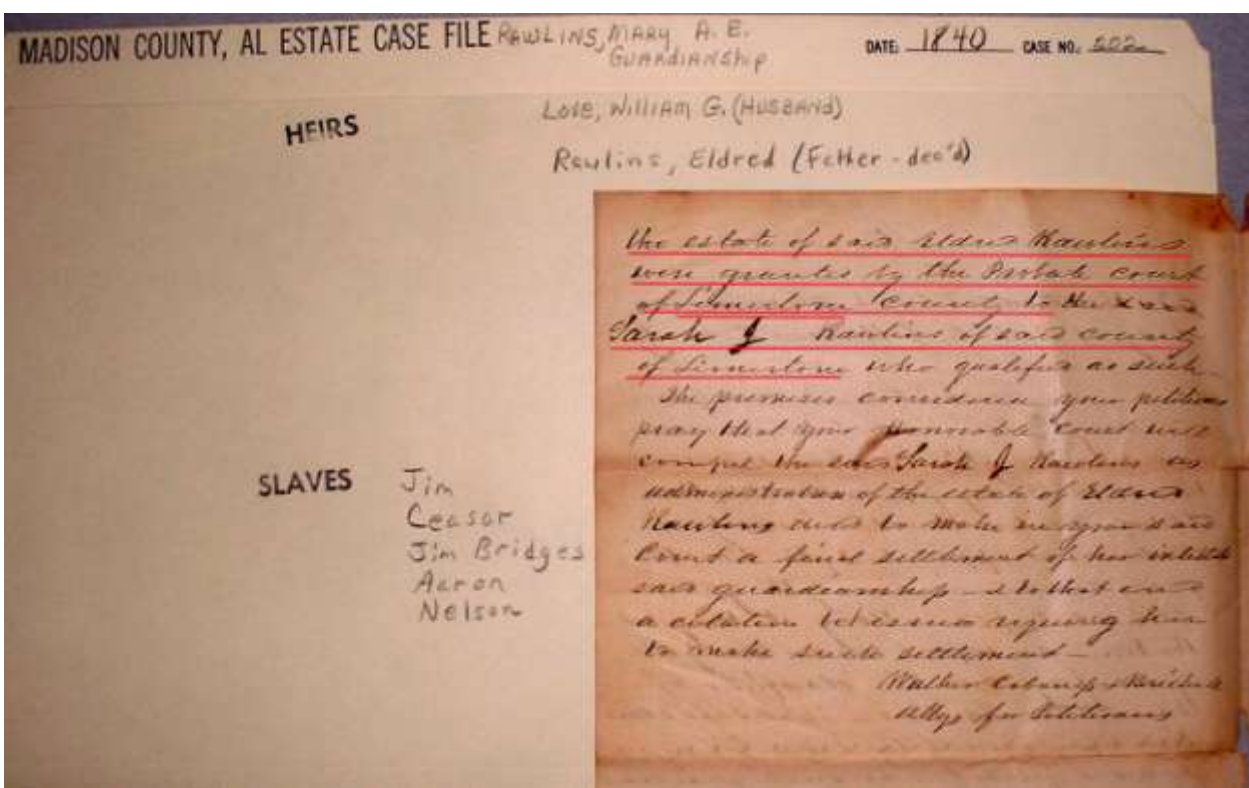 MADISON COUNTY, AL ESTATE CASE FILE RAWLINS, MARY A. E. DATE: 1840 CASE NO.
GUARDIANSHIP
HEIRS
Love, William G. (HUSBAND)
Rawlins, Eldred (Father - dec'd)
SLAVES
Jim
Ceasar
Jim Bridges
Aaron
Nelson
the estate of said Eldred Rawlins
were granted by the Probate court
of Limestone county to the said
Sarah J Rawlins of said county
of Limestone who qualified as such
The premises considered your petitioners
pray that your Honorable Court will
compel the said Sarah J Rawlins as
administratrix of the estate of Eldred
Rawlins decd to make in your said
Court a final settlement of her intestate
said guardianship & to that end
a citation requiring her
to make such settlement —
Walker Cabaniss & Brickell
Attys for Petitioners